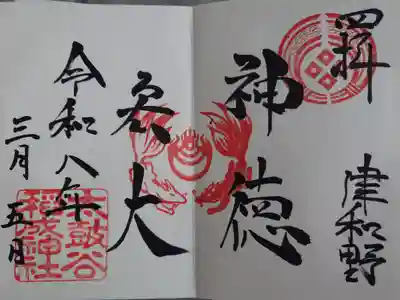 拝
津和野
神徳
大
令和八年
三月五日
太皷谷
稲成神社